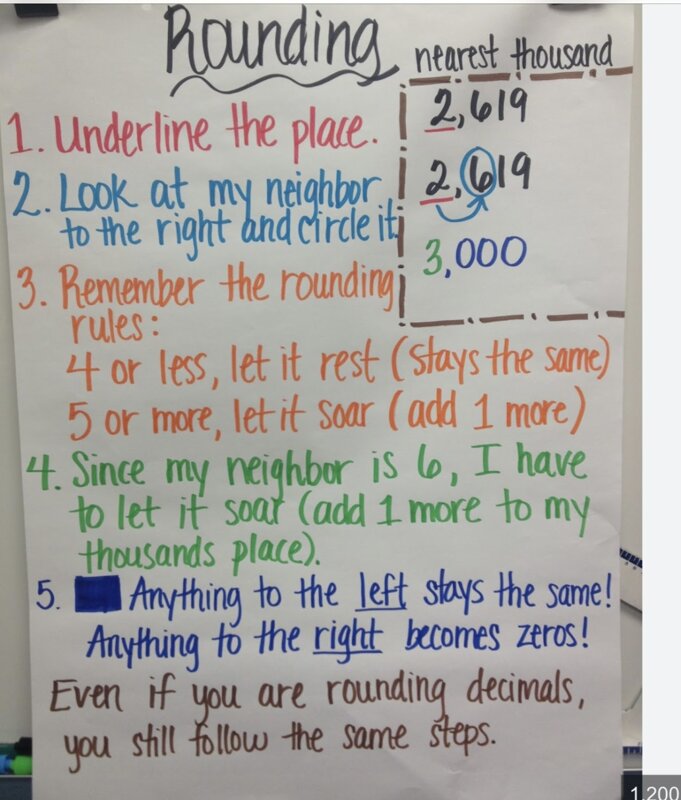 Rounding
nearest thousand
2,619
2,619
3,000
1. Underline the place.
2. Look at my neighbor
to the right and circle it.
3. Remember the rounding
rules:
4 or less, let it rest (stays the same)
5 or more, let it soar (add 1 more)
4. Since my neighbor is 6, I have
to let it soar (add 1 more to my
thousands place).
5. Anything to the left stays the same!
Anything to the right becomes zeros!
Even if you are rounding decimals,
you still follow the same steps.
1,200